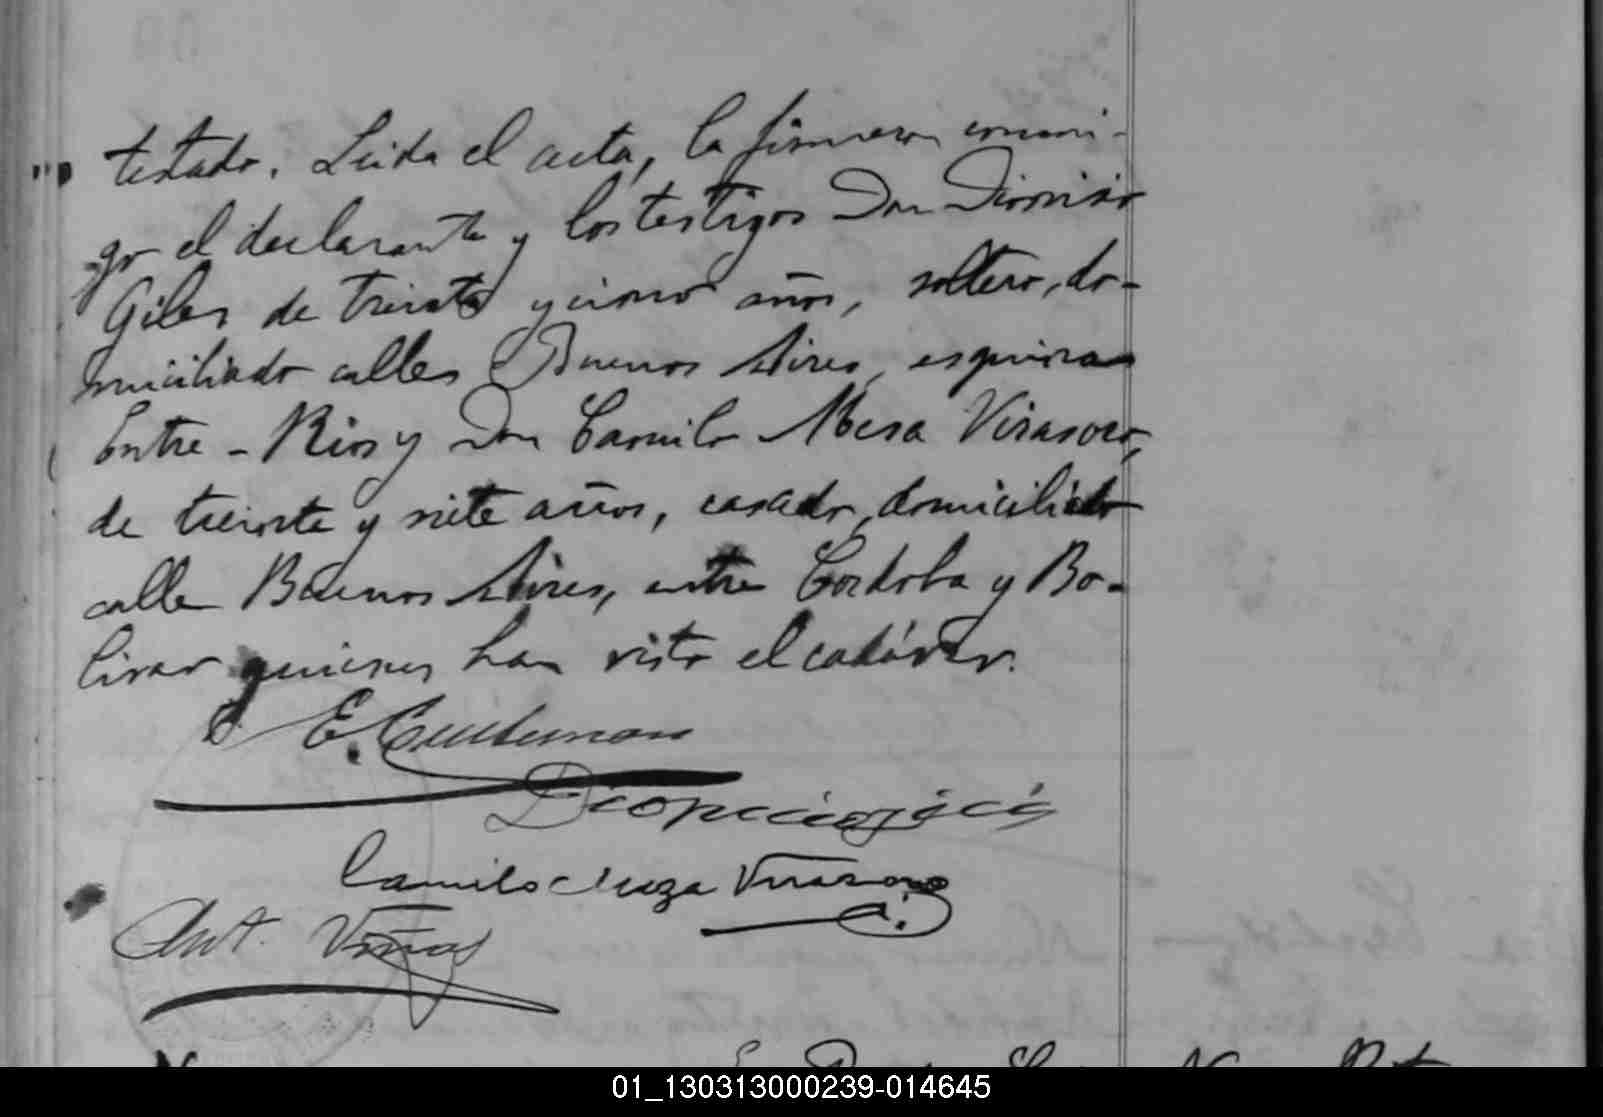 testado. Leida el acta, la firmaron conmi-
go el declarante y los testigos Don Dionisio
Giles de treinta y cinco años, soltero, do-
miciliado calles Buenos Aires, esquina
Entre-Rios y Don Camilo Meza Virasoro,
de treinta y siete años, casado, domiciliado
calle Buenos Aires, entre Cordoba y Bo-
livar quienes han visto el cadáver.
E.
Camilo Meza Virasoro
Ant. Viñas
01_130313000239-014645